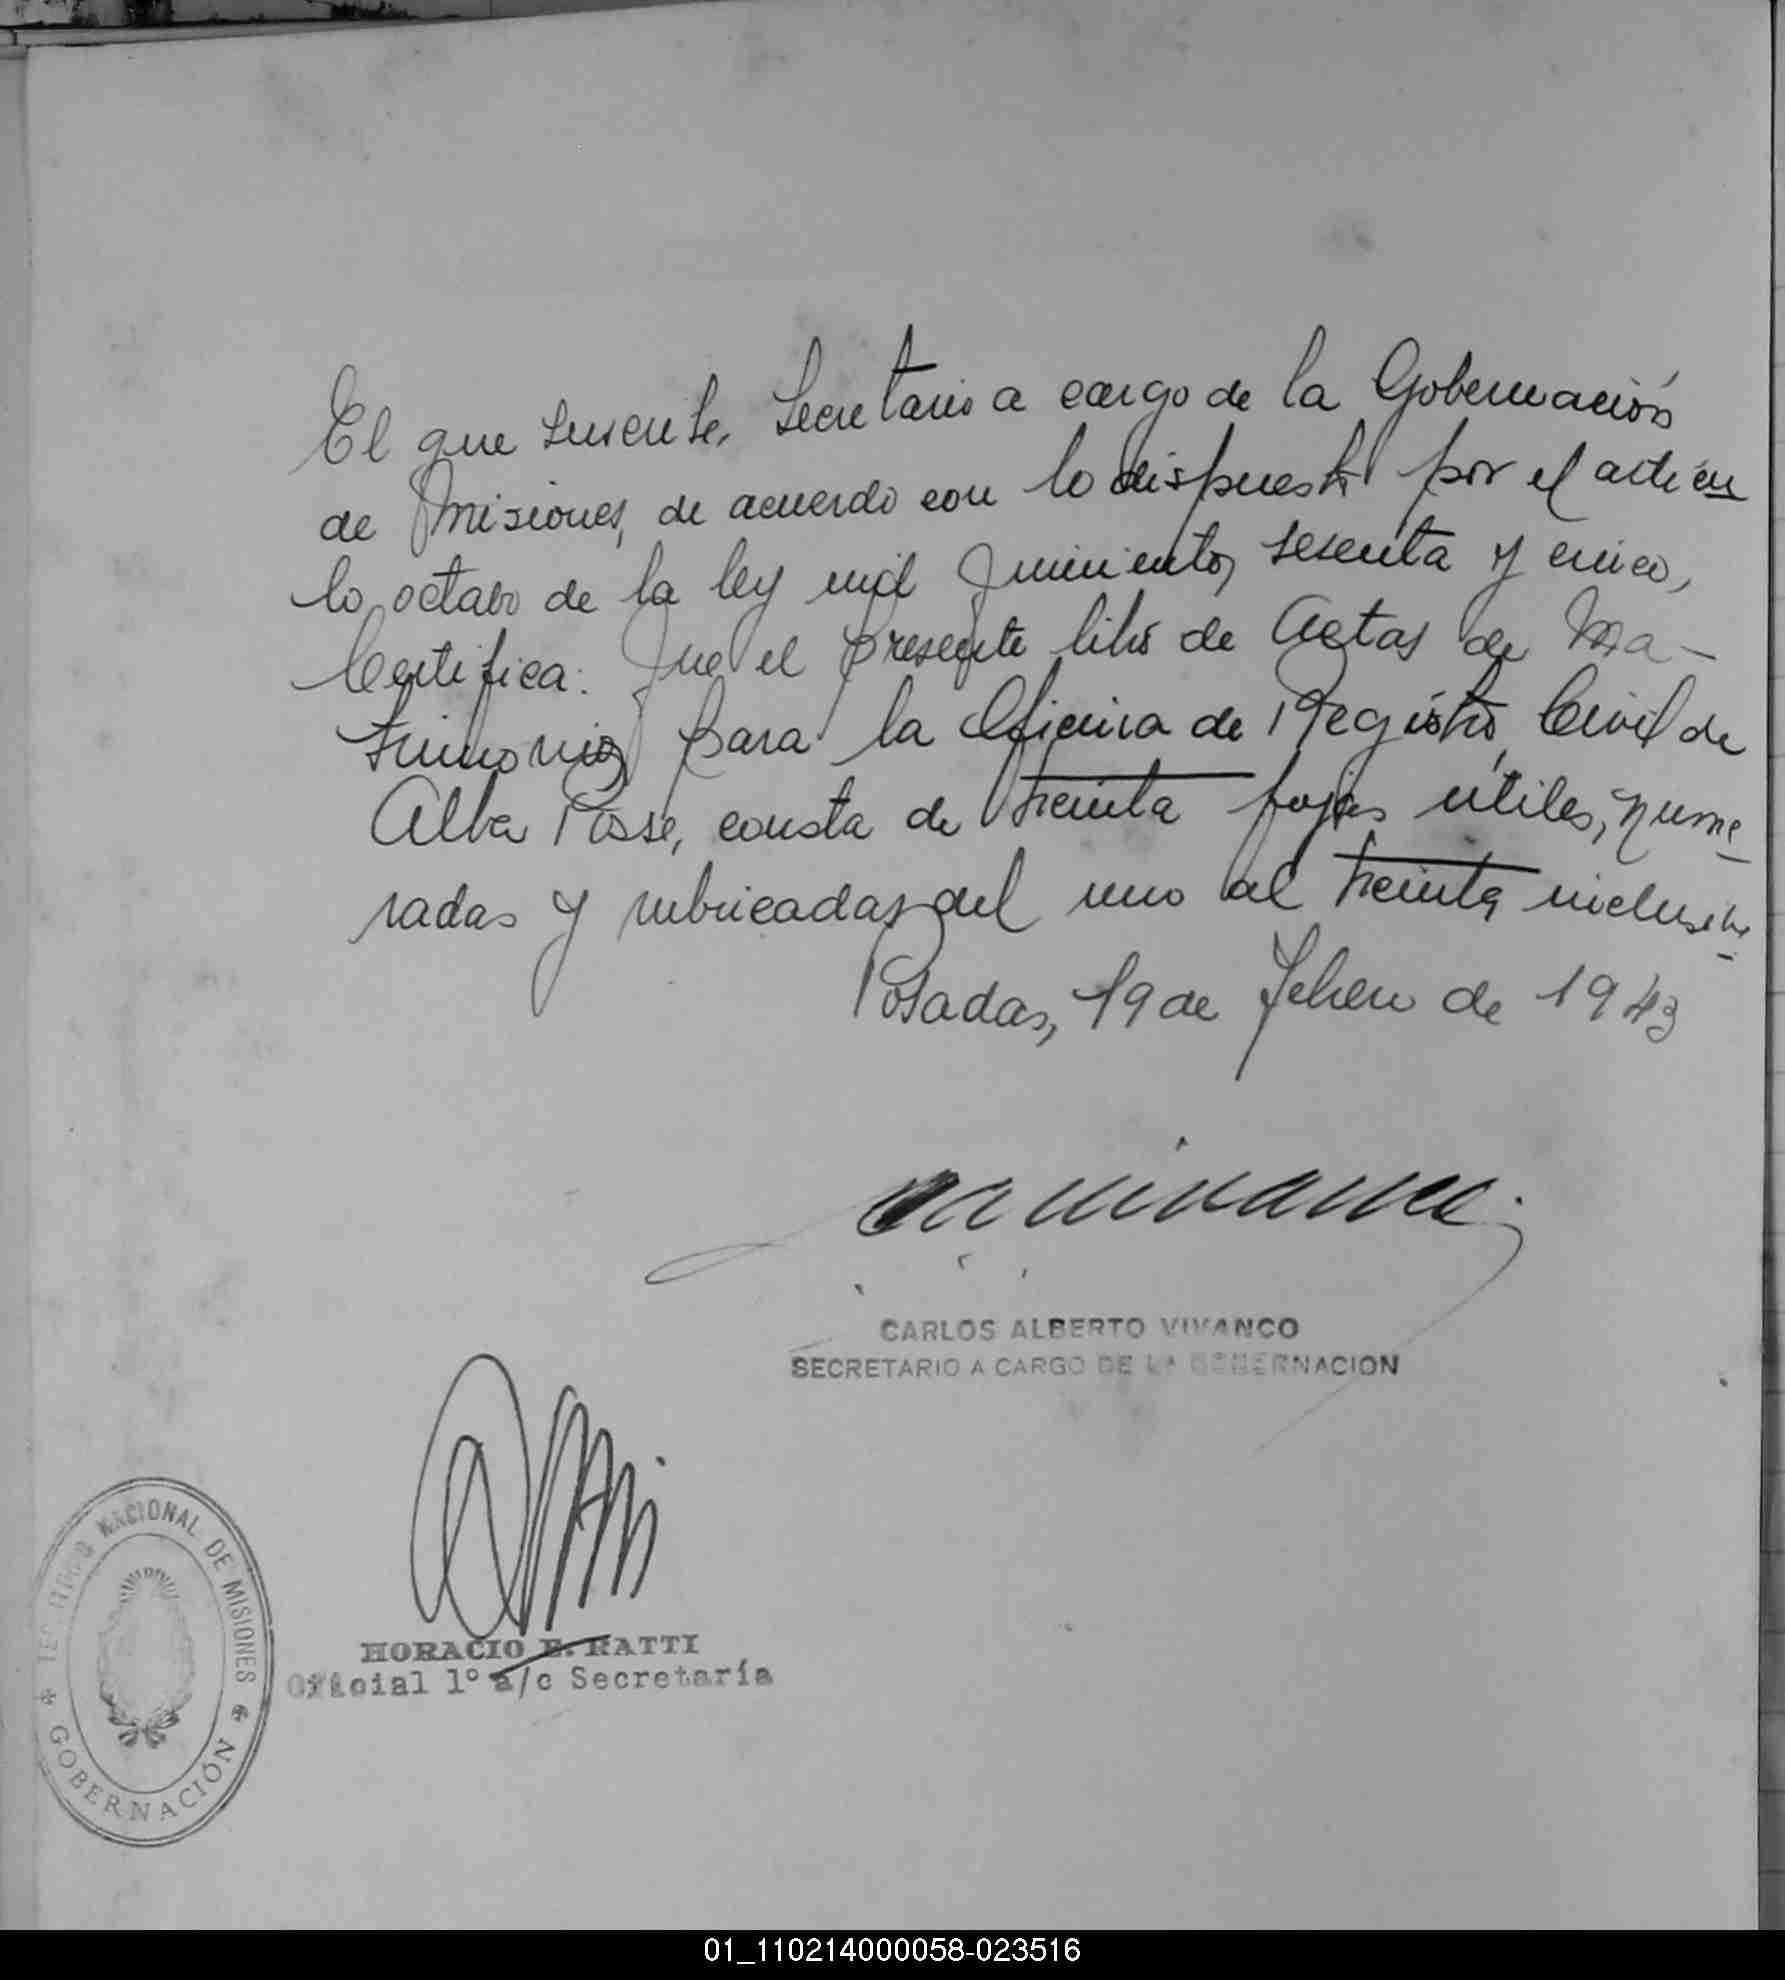 El que suscribe, Secretario a cargo de la Gobernación
de Misiones, de acuerdo con lo dispuesto por el articu
lo octavo de la ley mil quinientos sesenta y cinco,
Certifica: Que el presente libro de Actas de Ma-
trimonios para la Oficina de Registro Civil de
Alba Posse, consta de treinta fojas útiles, nume
radas y rubricadas del uno al treinta inclusive
Posadas, 19 de Febrero de 1943
CARLOS ALBERTO VIVANCO
SECRETARIO A CARGO DE LA GOBERNACION
HORACIO E. RATTI
Oficial 1º a/c Secretaría
TERRITORIO NACIONAL DE MISIONES
GOBERNACIÓN
01_110214000058-023516